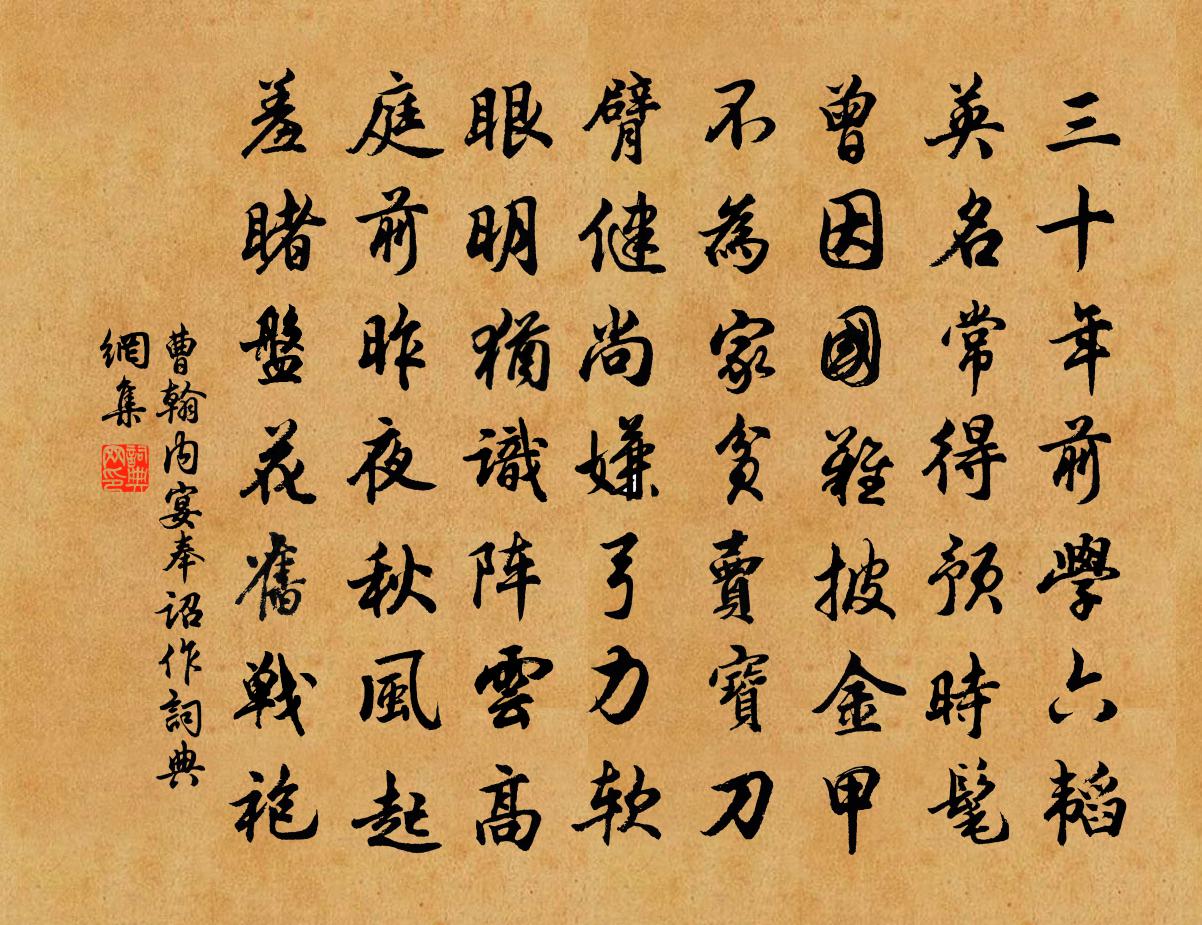 三十年前學六韜
英名常得預時髦
曾因國難披金甲
不為家貧賣寶刀
臂健尚嫌弓力軟
眼明猶識阵雲高
庭前昨夜秋風起
羞睹盤花舊戰袍
曹翰内宴奉詔作詞典
網集
詞典
网印